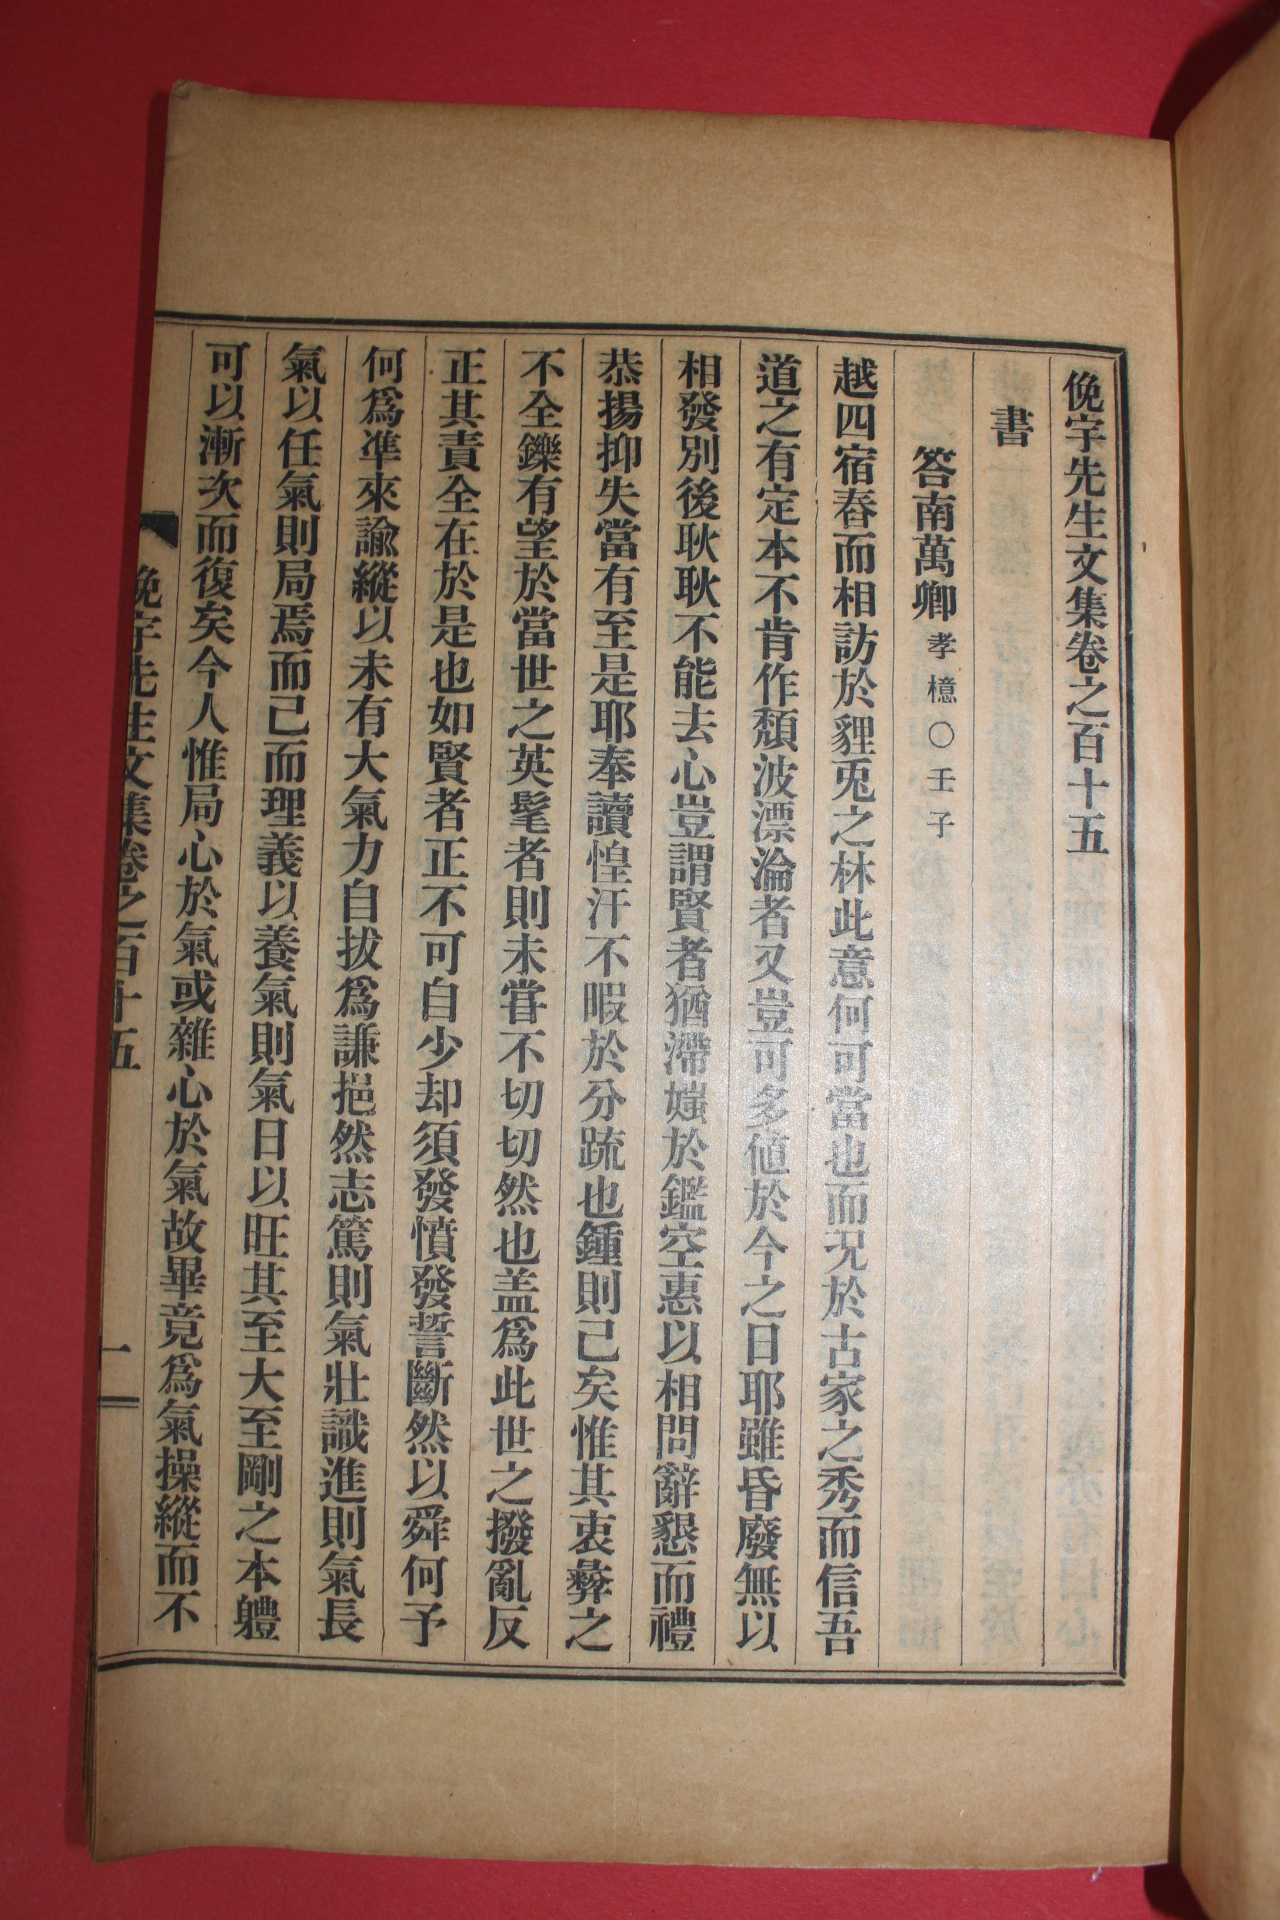 俛宇先生文集卷之百十五
書
答南萬卿 孝檍○壬子
越四宿舂而相訪於貍兎之林此意何可當也而况於古家之秀而信吾
道之有定本不肯作頹波漂淪者又豈可多値於今之日耶雖昏廢無以
相發別後耿耿不能去心豈謂賢者猶滯媸於鑑空惠以相問辭懇而禮
恭揚抑失當有至是耶奉讀惶汗不暇於分疏也鍾則已矣惟其衷彜之
不全鑠有望於當世之英髦者則未甞不切切然也盖爲此世之撥亂反
正其責全在於是也如賢者正不可自少却須發憤發誓斷然以舜何予
何爲準來諭縱以未有大氣力自拔爲謙挹然志篤則氣壯識進則氣長
氣以任氣則局焉而已而理義以養氣則氣日以旺其至大至剛之本軆
可以漸次而復矣今人惟局心於氣或雜心於氣故畢竟爲氣操縱而不
俛宇先生文集卷之百十五 一